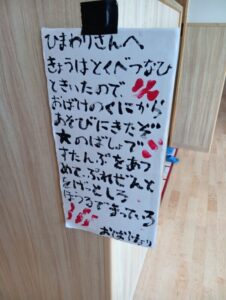 ひまわりさんへ
きょうはとくべつなひ
ときいたので、
おばけのくにから
あそびにきたぞ
★のばしょで
すたんぷをあつ
めて、ぷれぜんと
をげっとしろ
ほうるでまっている
おばけより